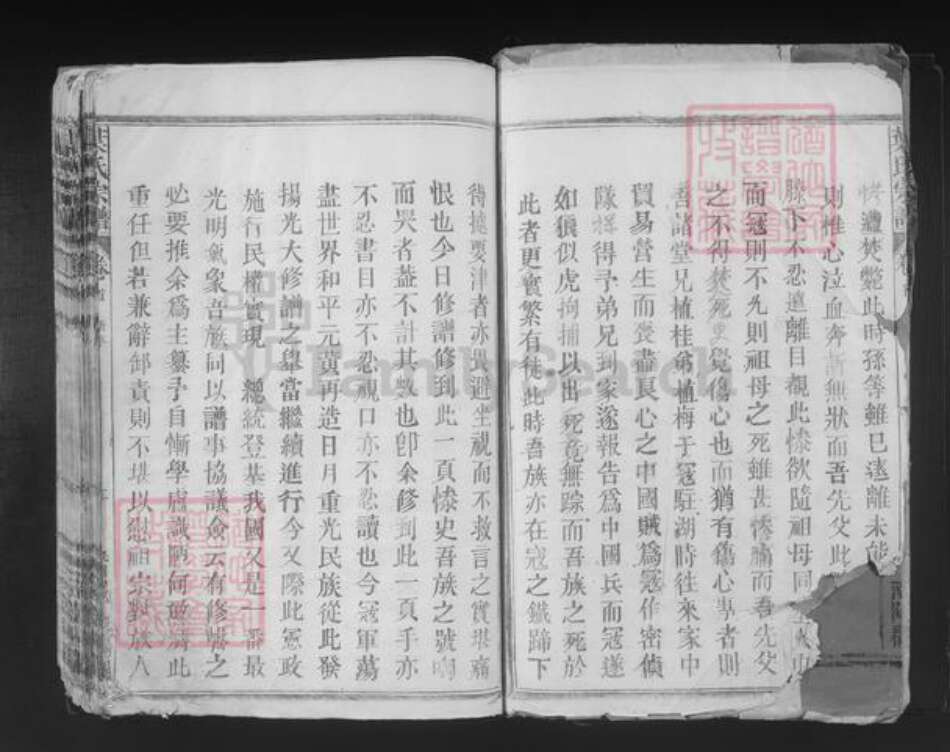 葉氏宗譜
遭焚斃此時孫等雖已遠離未能
則椎心泣血奔 無狀而吾先父此
膝下不忍遠離目覩此慘欲隨祖母同
而冦則不允則祖母之死雖甚慘痛而吾先父
之不得焚死更覺傷心也而猶有傷心專者則
吾諸堂兄植桂弟植梅于冦駐湖時往來家中
貿易營生而喪盡良心之中國賊爲冦作密偵
隊 得予弟兄到家遂報告爲中國兵而冦遂
如狼似虎拘捕以出 死竟無踪而吾族之死於
此者更實繁有徒此時吾族亦在冦之鐵蹄下
待援要津者亦畏避坐視而不救言之實堪痛
恨也今日修譜修到此一頁慘史吾族之號啕
而哭者蓋不計其數也卽余修到此一頁手亦
不忍書目亦不忍視口亦不忍讀也今冦軍蕩
盡世界和平元黃再造日月重光民族從此發
揚光大修譜之舉當繼續進行今又際此憲政
施行民權實現 總統登基我國又是一番最
光明氣象吾族同以譜事協議僉云有修譜之
必要推余爲主纂予自慚學膚識陋何敢膺此
重任但若兼辭卸責則不堪以慰祖宗對族人
葉氏宗譜
FamilySearch